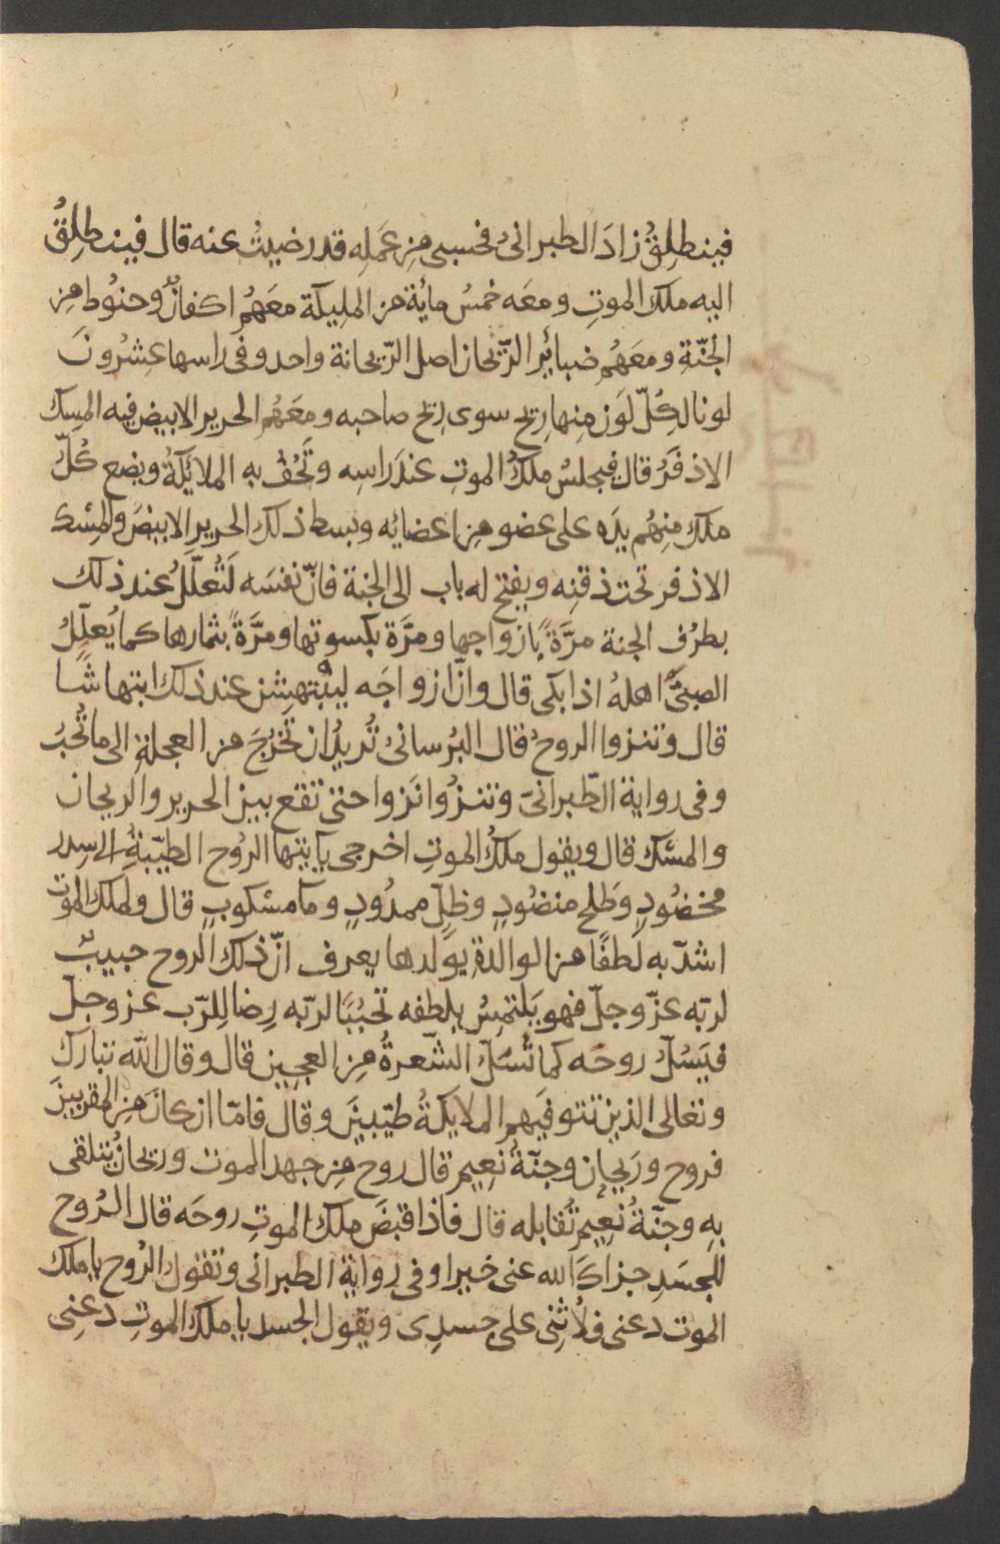 فينطلِقُ زادَ الطبرانىُ فحسبى مِن عَمَلِه قد رضيتُ عنه قال فينطلِقُ
اليه ملك الموتِ ومعَه خمسُ مائة من المليكة معَهُم اكفانٌ وحنوُط مِن
الجنّةِ ومعَهُم ضبائرُ الرّيحان اصل الرّيحانة واحد وفى راسها عِشرُونَ
لونا لكُلّ لَون مِنها ريح سوى ريح صاحبه ومعَهُم الحرير الابيض فيه المِسك
الاذفَرُ قال فيجلسُ ملكُ الموتِ عندَ راسِه وتَحُفّ به الملائكةُ ويضع كُلّ
ملك منهُم يدَه على عضو مِن اعضائه ويبسط ذلك الحرير الابيضَ والمِسك
الاذفر تحت ذقنِه ويفتح له باب الى الجنة فانّ نفسَه لَتُعلّلُ عند ذلك
بطرُف الجنة مرّةً بازواجها ومرَّة بكسوتها ومرَّةً بثمارها كما يُعلّلُ
الصبىَّ اهلهُ اذا بكى قال وانّ ازواجَه ليبْتهِشن عند ذلك ابتهاشًا
قال وتنزوا الروحُ قال البُرسانىُ تُريدُ ان تخرُجَ من العجلةِ الى ما تُحبُ
وفى رواية الطّبرانىّ وتنزُوا نَزوا حتى تقع بين الحرير والريحان
والمسّك قال ويقول ملكُ الموتِ اخرجى يا يتها الرُوح الطيّبةُ الى سدر
مخضُودٍ وطَلح منضُودٍ وظِلّ ممدُودٍ وما مسكوبٍ قال ولملك الموت
اشدّ به لُطفًا من الوالدةِ بوَلدها يعرف انّ ذلك الروح حبيبٌ
لربّه عزّ وجلّ فهو يَلتمِسُ بلطفه تحبُبًا لربّه رِضا للرّب عز وجلّ
فيَسُلّ روحَه كما تُسَلّ الشّعرةُ مِن العجين قال وقال الله تبارك
وتعالى الذين تتوفيَهم الملايكةُ طيّبينَ وقال فامّا ان كانَ مِن المقربينَ
فروح ورَيحان وجنّةُ نَعِيمٍ قال روح مِن جهد الموت وريحانُ يتلقى
بِه وجنّةُ نَعِيمٍ تُقابله قال فاذا قبضَ ملك الموتِ روحَه قال الرُوح
للجسَدِ جزاكَ الله عنى خيرا وفى رواية الطبرانى وتقولُ الرُوح يا ملك
الموت دعنى فلأُثنِى على جسدِى ويقول الجسد يا ملك الموتِ دعنِى